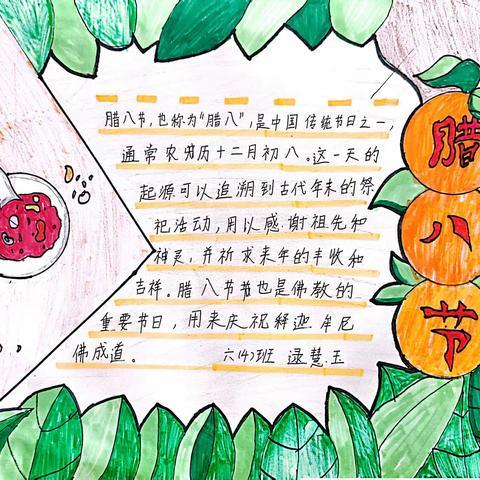 腊八节,也称为"腊八",是中国传统节日之一,
通常农历十二月初八。这一天的
起源可以追溯到古代年末的祭
祀活动,用以感谢祖先和
神灵,并祈求来年的丰收和
吉祥。腊八节也是佛教的
重要节日,用来庆祝释迦牟尼
佛成道。 六(4)班 慧玉
腊
八
节